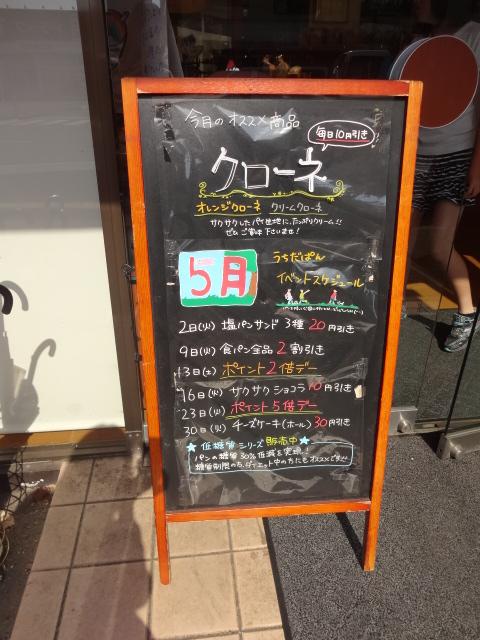 今月のオススメ商品
毎日10円引き!
クローネ
オレンジクローネ クリームクローネ
サクサクしたパイ生地に、たっぷりクリーム!!
ぜひ ご賞味下さいませ!
うちだぱん
5月
イベントスケジュール
2日(火) 塩パンサンド 3種 20円引き
9日(火) 食パン全品 2割引き
13日(土) ポイント2倍デー
16日(火) サクサクショコラ 10円引き
23日(火) ポイント5倍デー
30日(火) チーズケーキ(ホール) 30円引き
★低糖質シリーズ 販売中★
パンの糖質30%低減を実現!
糖質制限の方、ダイエット中の方にもオススメです!!